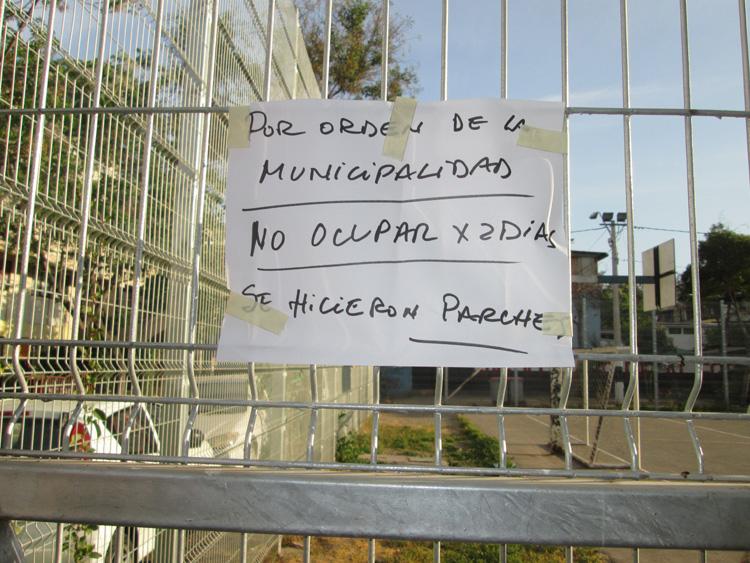 POR ORDEN DE LA
MUNICIPALIDAD
NO OCUPAR X 2 DIAS
SE HICIERON PARCHES